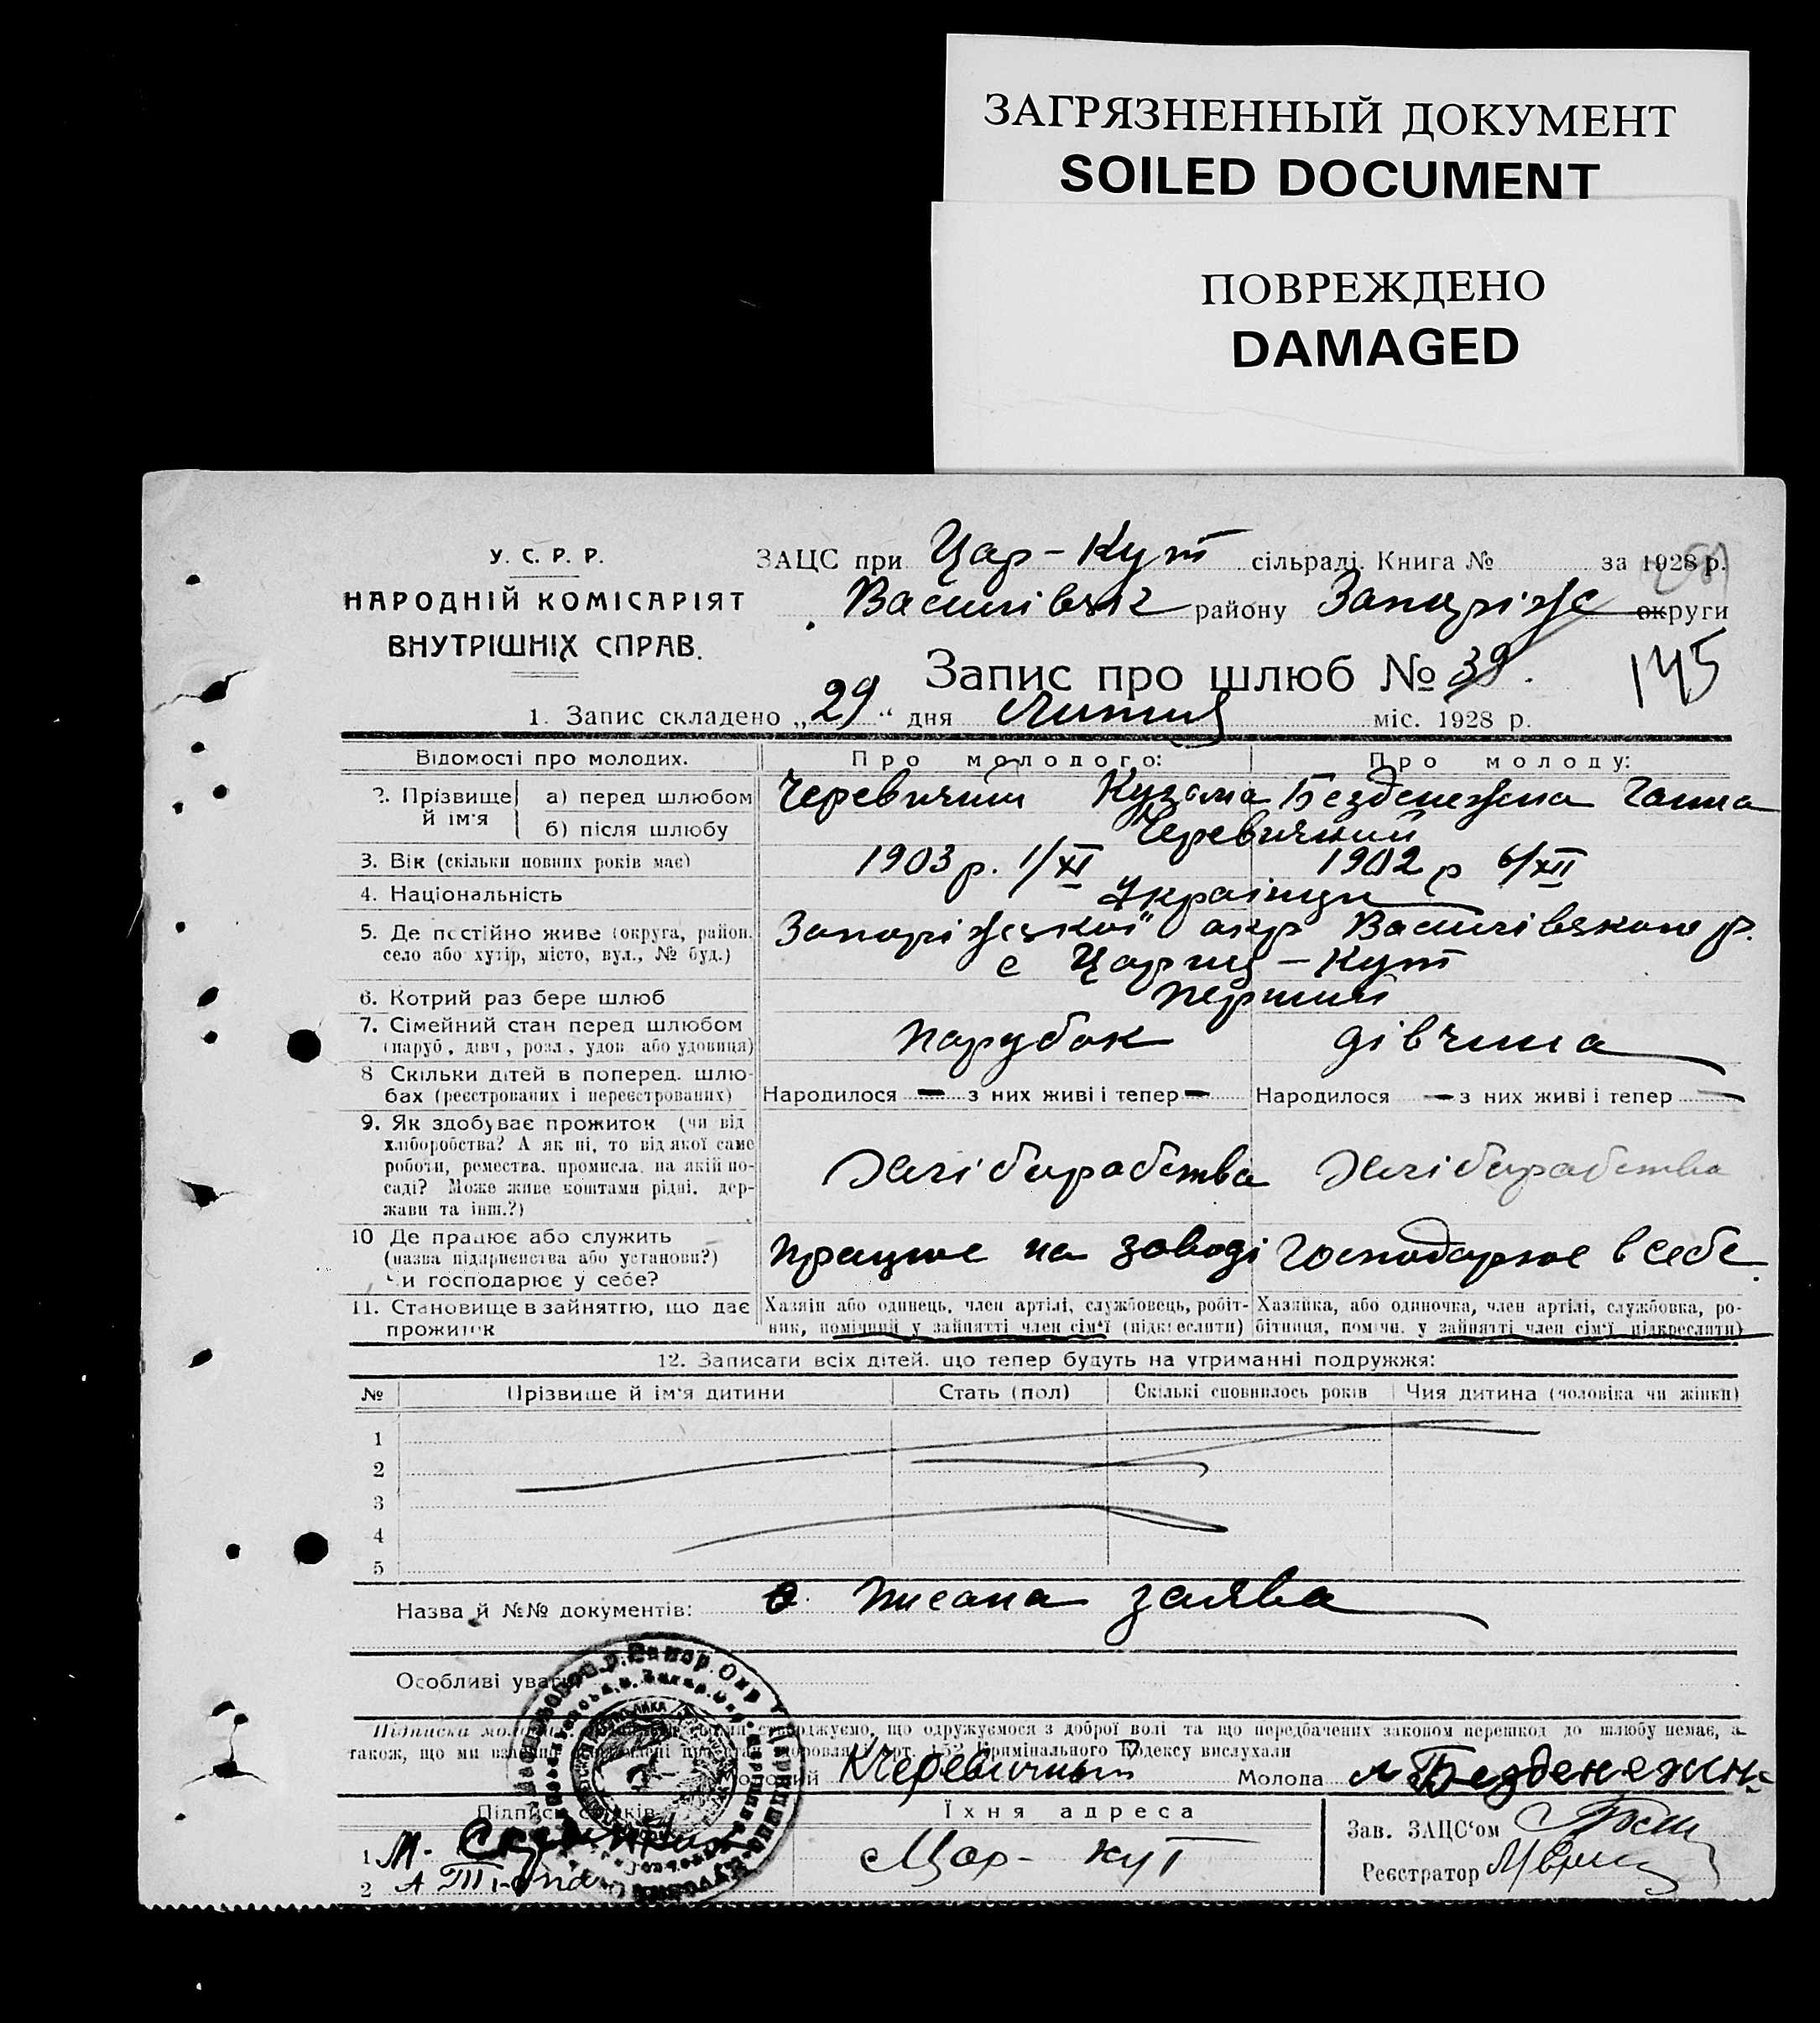 ЗАГРЯЗНЕННЫЙ ДОКУМЕНТ
SOILED DOCUMENT
ПОВРЕЖДЕНО
DAMAGED
У. С. Р. Р.
НАРОДНІЙ КОМІСАРІЯТ
ВНУТРІШНІХ СПРАВ.
ЗАЦС при Цар-Кут сільраді. Книга № за 1928 р.
Василівськ району Запоріж округи
Запис про шлюб № 39.
145
1. Запис складено „29“ дня Липня міс. 1928 р.
Відомості про молодих. Про молодого: Про молоду:
2. Прізвище й ім'я а) перед шлюбом Черевичний Кузьма Безденежна Ганна
б) після шлюбу Черевичний
3. Вік (скільки повних років має) 1903 р. 1/XI 1902 р 6/XII
4. Національність Українци
5. Де постійно живе (округа, район. Запоріжської окр Василівського р.
село або хутір, місто, вул., № буд.) с Цариц-Кут
6. Котрий раз бере шлюб перший
7. Сімейний стан перед шлюбом парубок дівчина
(паруб., дівч., розл., удов. або удовиця)
8 Скільки дітей в поперед. шлю-
бах (реєстрованих і нереєстрованих) Народилося — з них живі і тепер — Народилося — з них живі і тепер —
9. Як здобуває прожиток (чи від
хліборобства? А як ні, то від якої саме
роботи, ремества, промисла, на якій по- Хліборобства Хліборобства
саді? Може живе коштами рідні, дер-
жави та інш.?)
10 Де працює або служить
(назва підприємства або установи?) працює на заводі Господарює в себе.
Чи господарює у себе?
11. Становище в зайняттю, що дає Хазяїн або одинець, член артілі, службовець, робіт- Хазяйка, або одиночка, член артілі, службовка, ро-
прожиток ник, помічний у зайнятті член сім'ї (підкреслити) бітниця, помічн. у зайнятті член сім'ї підкреслити)
12. Записати всіх дітей. що тепер будуть на утриманні подружжя:
№ Прізвище й ім'я дитини Стать (пол) Скількі сповнилось років Чия дитина (чоловіка чи жінки)
1
2
3
4
5
Назва й №№ документів: писана заява
Особливі уваги
Підписка стверджуємо, що одружуємося з доброї волі та що передбачених законом перешкод до шлюбу немає, а
також, що ми Кримінального Кодексу вислухали
Молодий КЧеревичный Молода Безденежн
Підписи свідків Їхня адреса Зав. ЗАЦС'ом
1 М. Цар- кут Реєстратор
2 А